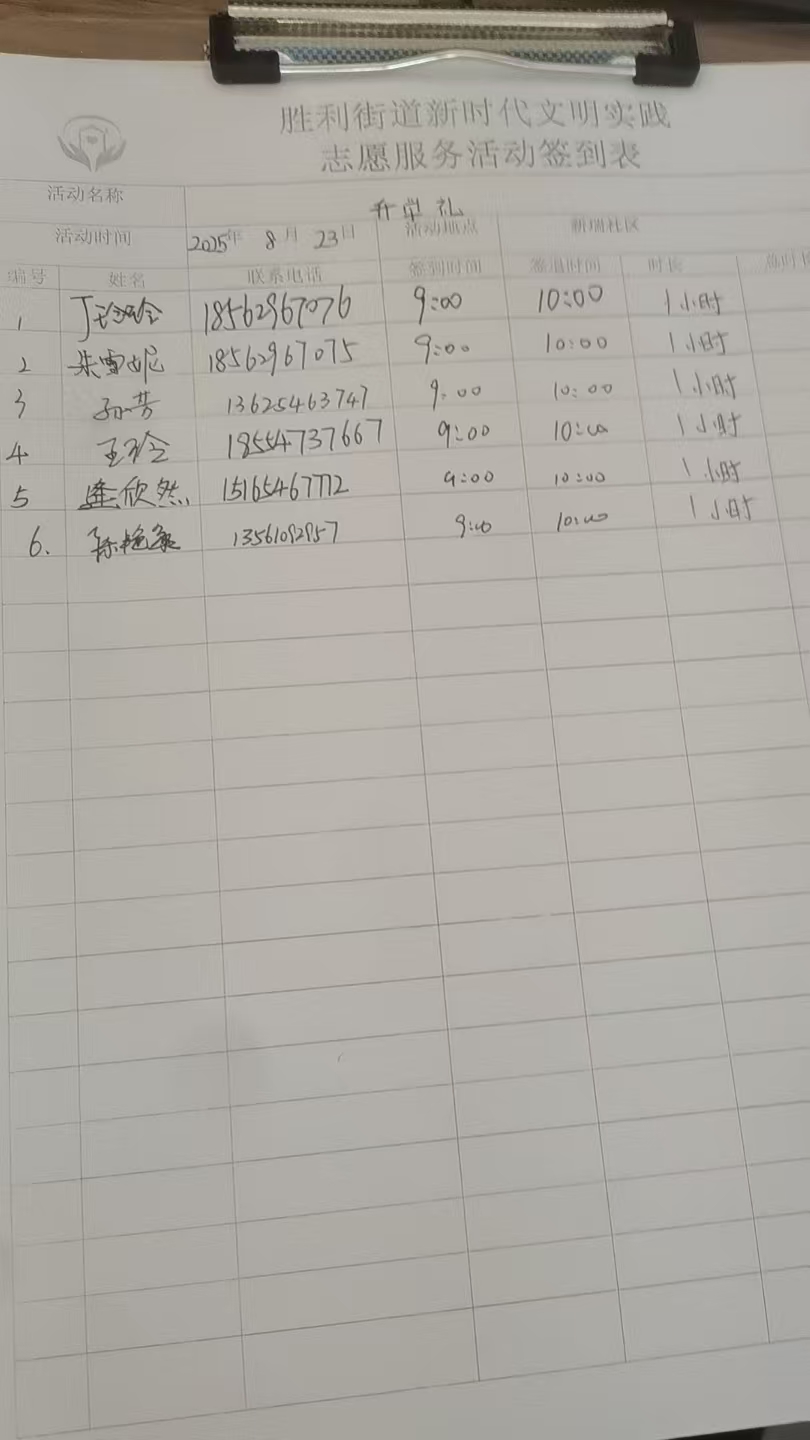 胜利街道新时代文明实践
志愿服务活动签到表
活动名称 升学礼
活动时间 2025年 8月 23日 活动地点 新瑞社区
编号 姓名 联系电话 签到时间 签退时间 时长 总时长
1 丁玲玲 18562967076 9:00 10:00 1小时
2 朱雪妮 18562967075 9:00 10:00 1小时
3 孙芳 13625463747 9:00 10:00 1小时
4 王玲 18554737667 9:00 10:00 1小时
5 逄欣然 15165467772 9:00 10:00 1小时
6. 13561092957 9:00 10:00 1小时